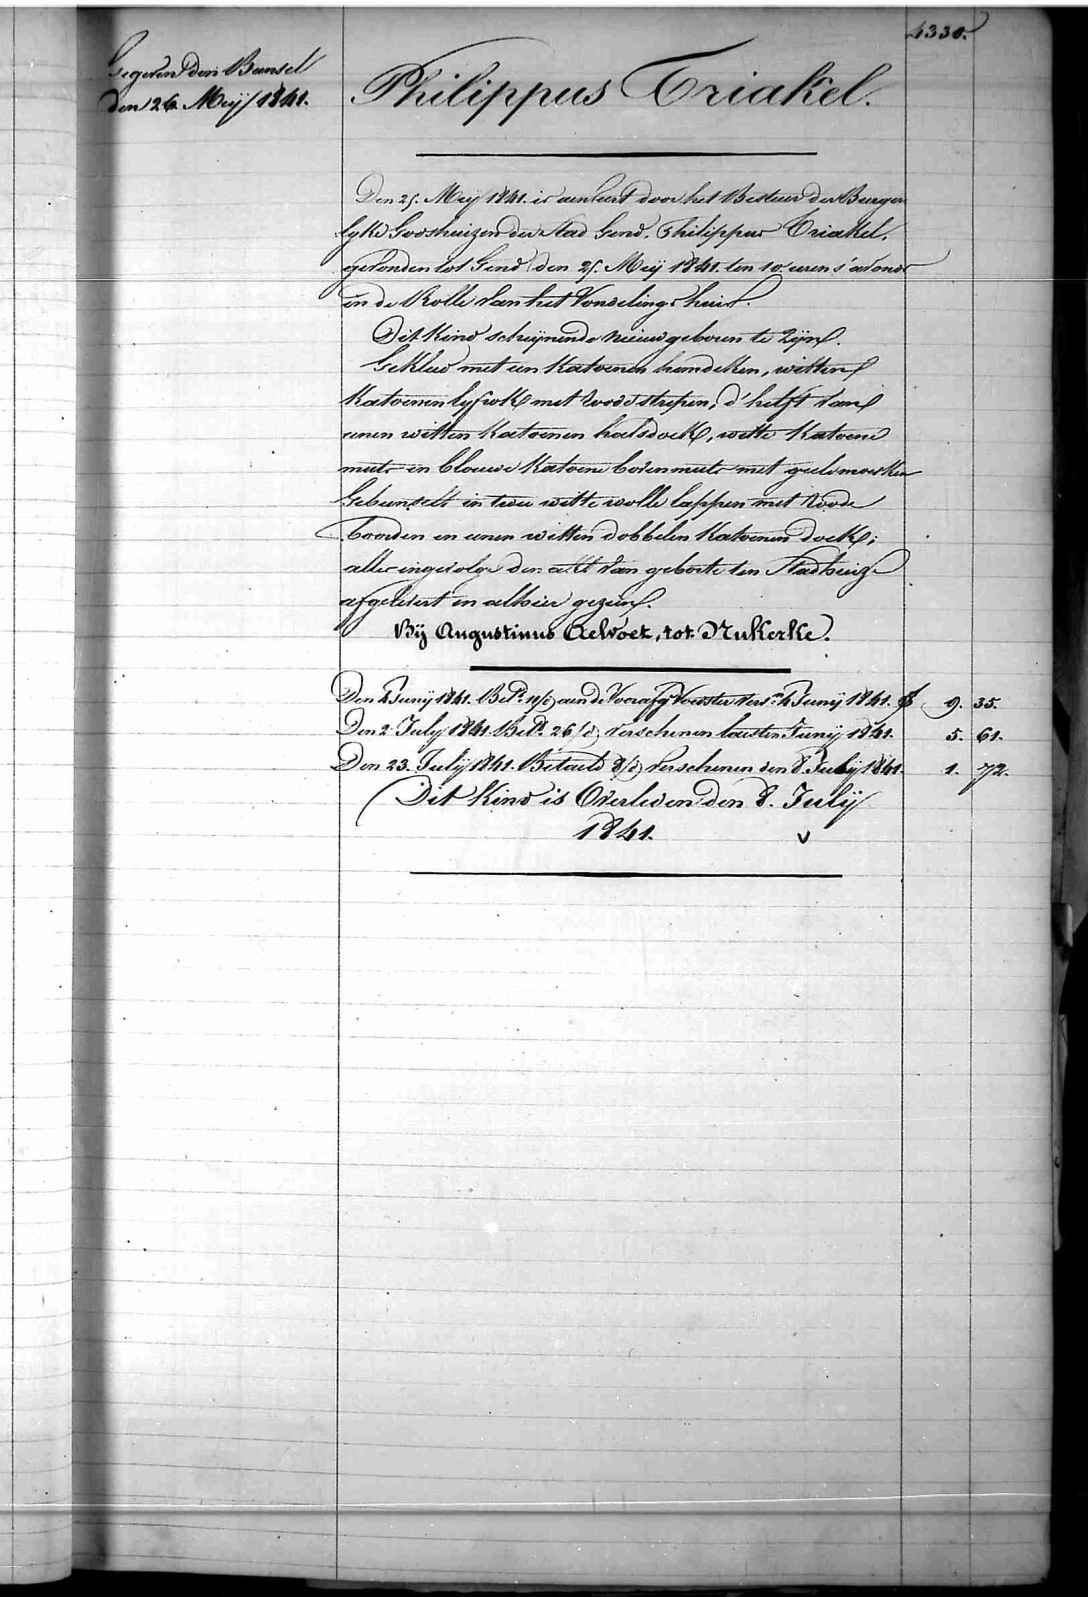 4330.
Gegeven den Bunsel
den 26 Meij 1841.
Philippus Triakel.
Den 25. Meij 1841. is aenveert door het Bestuer der Burger-
lyke Godshuizen der stad Gend. Philippus Triakel.
gevonden tot Gend den 25. Meij 1841. ten 10 uren s'avonds
in de Rolle van het Vondelingshuis.
Dit kind schijnende nieuwgeboren te zijn.
Gekleed met een katoenen hemdeken, witten
katoenen lyfrok met roode strepen, d'helft van
eenen witten katoenen halsdoek, witte katoene
muts en blouwe katoene bovenmuts met geele
Gebunselt in twee witte wolle lappen met roode
boorden en eenen witten dobbelen katoenen doek;
alles ingevolge den akt van geboorte ten Stadhuize
afgelevert en alhier gezien.
Bij Augustinus Aelvoet, tot Nukerke.
Den 4 Junij 1841. Bet. aen de Voorafg. Voedster vers. 4 Junij 1841. f 9. 35.
Den 2 July 1841. Bet. 26/d verschenen laesten Junij 1841. 5. 61.
Den 23. July 1841. Betaeld 8/d verschenen den 8. July 1841. 1. 72.
Dit kind is Overleden den 8. July
1841. v